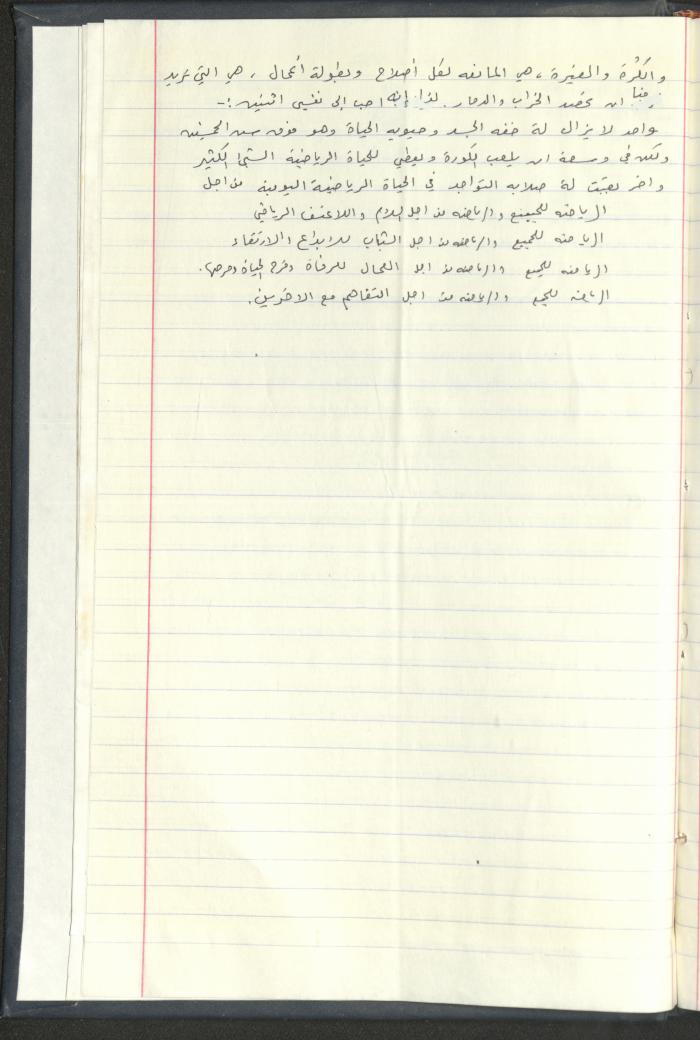 والكثرة والصغيرة، هي المانعه لكل أصلاح وبطولة أعمال، هي التي تريد
منا ان نحصد الخراب والدمار. لذا إنه احب الى نفسي اثنين :-
واحد لا يزال له خفه الجسد وحيويه الحياة وهو فوق سن الخمسين
ولكن في وسعة ان يلعب الكورة ويعطي للحياة الرياضية الشئ الكثير
واخر بقيت له صلابه التواجد في الحياة الرياضية اليومية من اجل
الرياضه للجميع والرياضه من اجل السلام واللاعنف الرياضي
الرياضه للجميع والرياضه من اجل الشباب للابداع والارتقاء
الرياضه للجميع والرياضه من اجل العمال للرفاة وفرح الحياة ومرحها.
الرياضه للجميع والرياضه من اجل التفاهم مع الاخرين.